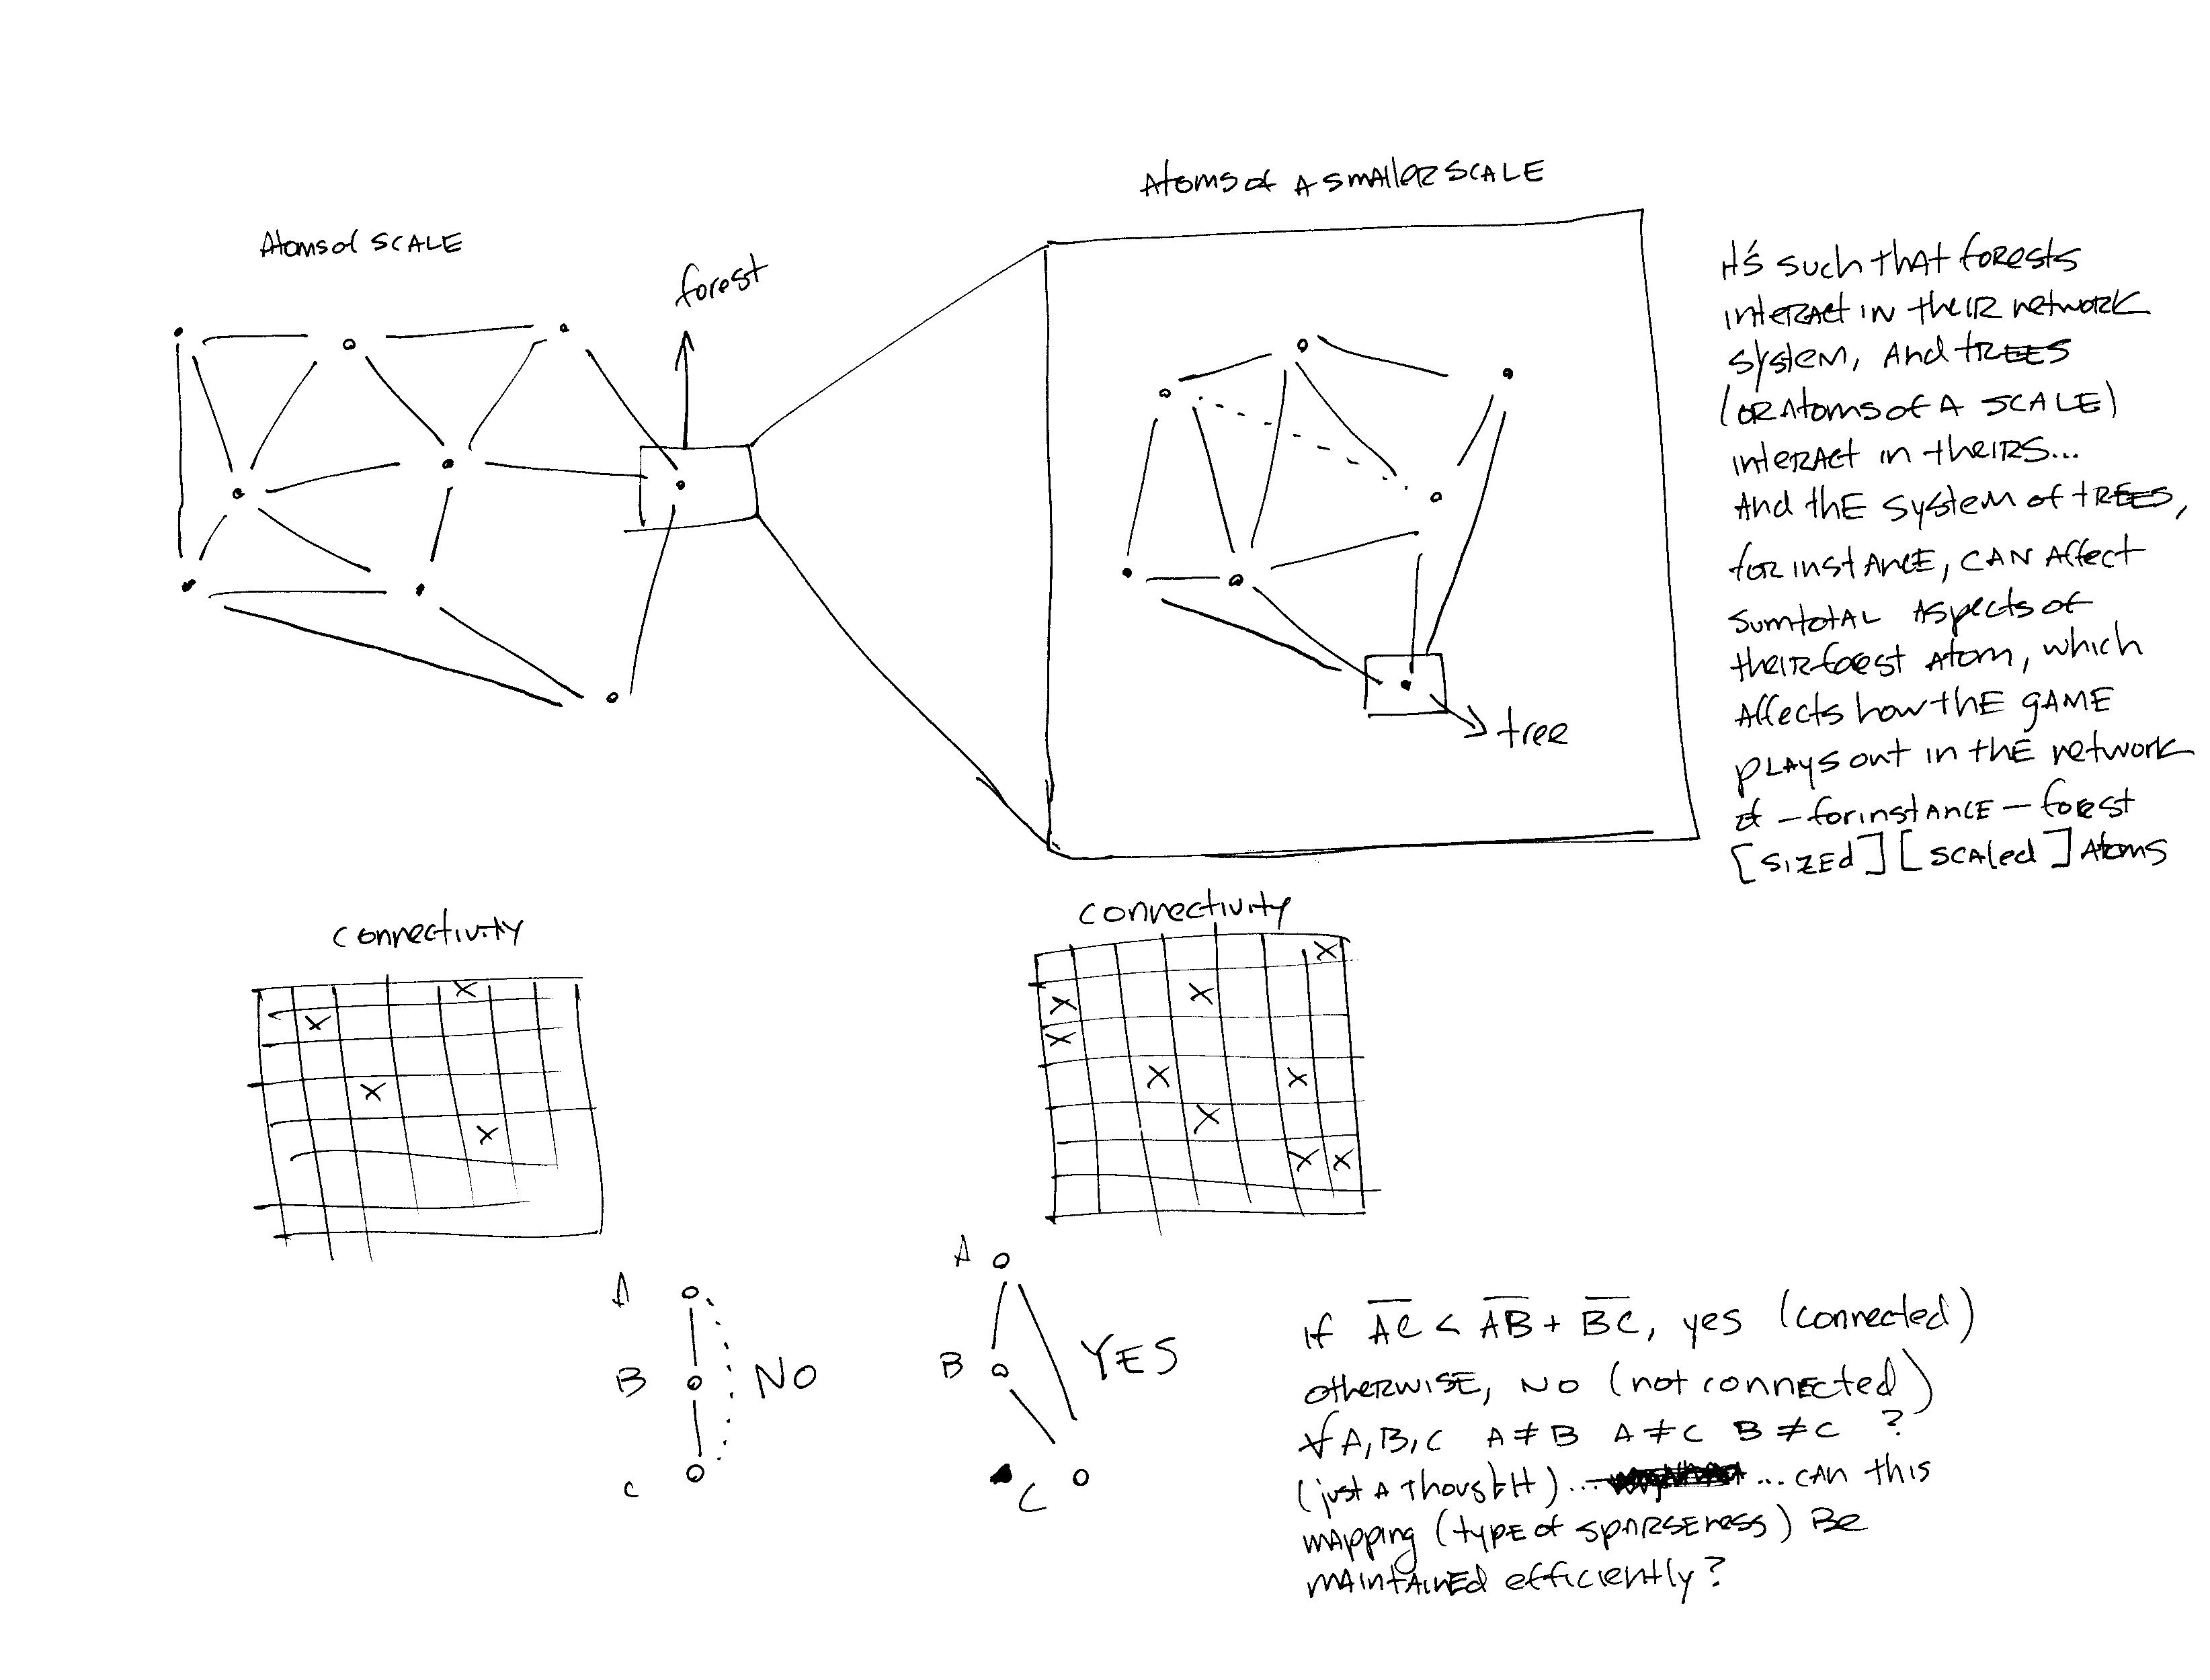 Atoms of SCALE
forest
Atoms of A smaller SCALE
tree
it's such that forests
interact in their network
system, And trees
(or Atoms of A SCALE)
interact in theirs...
And the system of trees,
for instance, can affect
sumtotal aspects of
their forest atom, which
affects how the game
plays out in the network
of - for instance - forest
[sized] [scaled] Atoms
connectivity
X
X
X
X
connectivity
X
X X
X
X X
X
X X
A
B NO
C
A
B YES
C
if AC < AB + BC, yes (connected)
otherwise, NO (not connected)
∀ A, B, C A ≠ B A ≠ C B ≠ C ?
(just a thought)... ... can this
mapping (type of sparseness) Be
maintained efficiently?